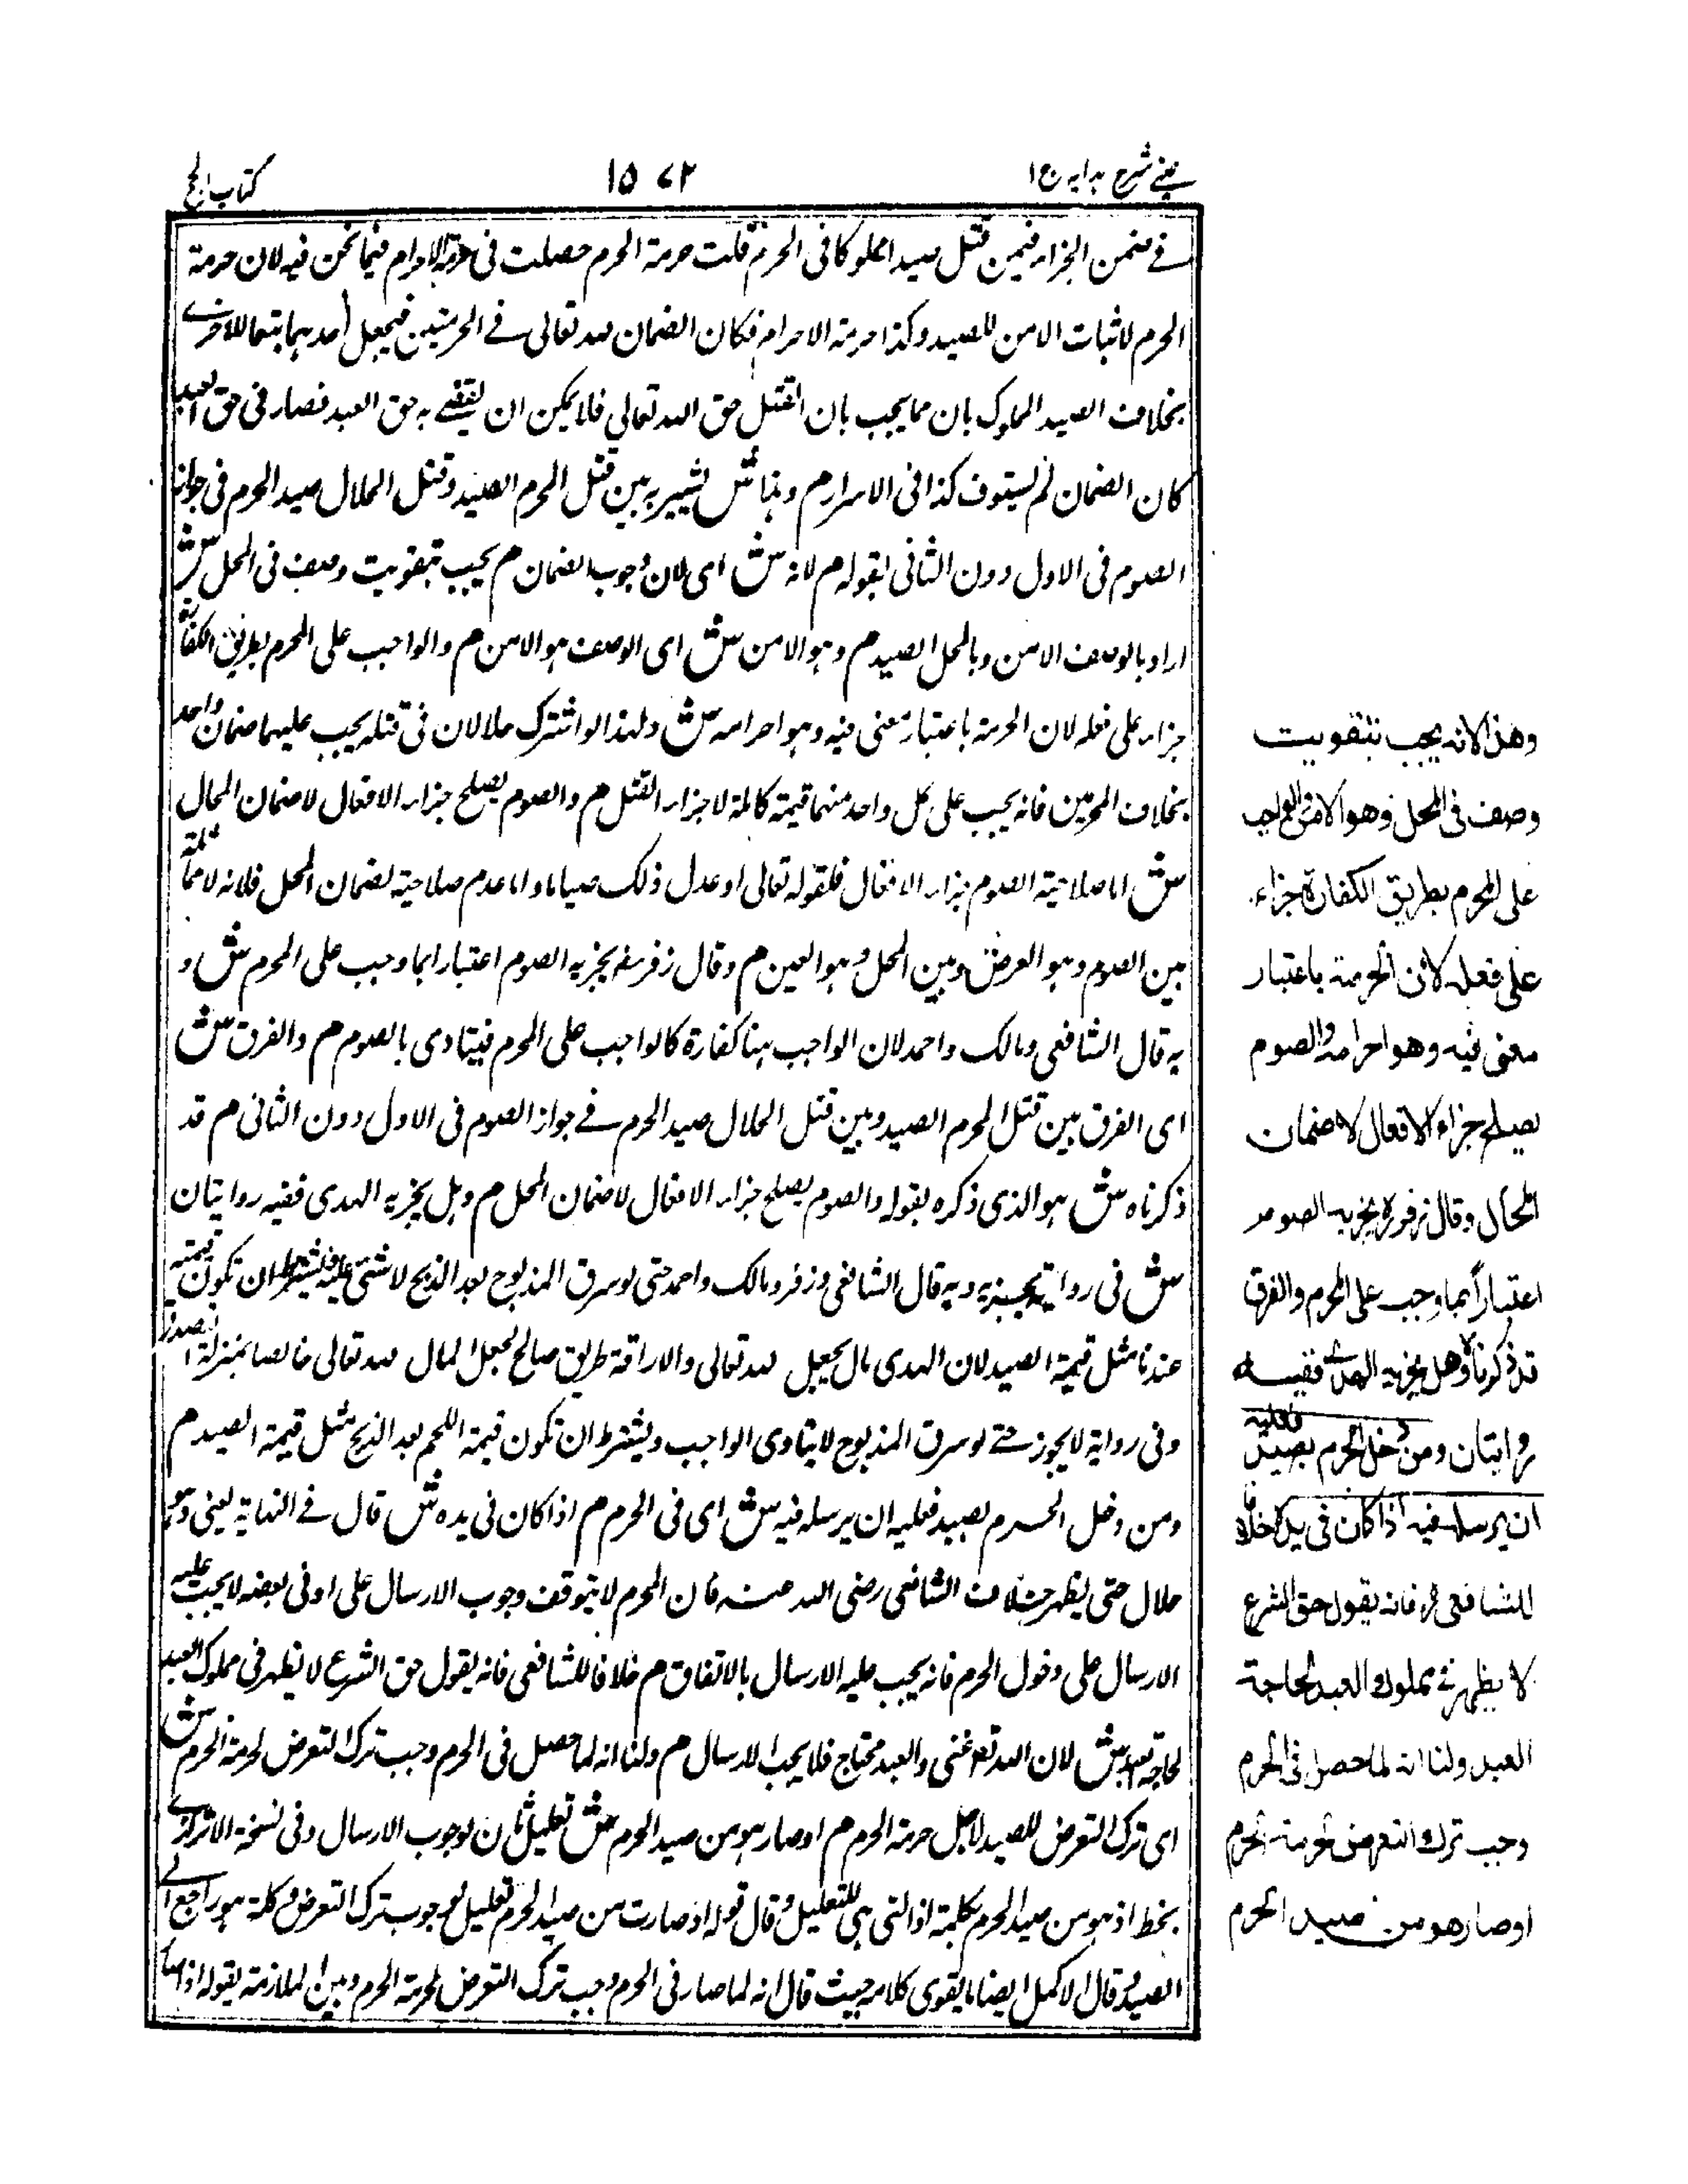 عينى شرح هدايه ج ١
١٥٧٢
كتاب الحج
فى ضمن الجزاء فيمن قتل صيدا مملوكا فى الحرم قلت حرمة الحرم حصلت فى حرمة الاحرام فيما نحن فيه لان حرمة
الحرم لاثبات الامن للصيد وكذا حرمة الاحرام فكان الضمان لله تعالى فى الحرمتين فيجعل احدهما تبعا للاخرى
بخلاف الصيد المملوك بان ما يجب بان القتل حق الله تعالى فلا يمكن ان يقضے به حق العبد فصار فى حق العبد
كان الضمان لم يستوف كذا فى الاسرار م وهذا ش يشير به بين قتل المحرم الصيد وقتل الحلال صيد الحرم فى جواز
الصوم فى الاول دون الثانى بقوله م لانه ش اى لان وجوب الضمان م يجب بتفويت وصف فى المحل ش
اراد بالوصف الامن وبالمحل الصيد م وهو الامن ش اى الوصف هو الامن م والواجب على المحرم بطريق الكفارة
جزاء على فعله لان الحرمة باعتبار معنى فيه وهو احرامه ش ولهذا لو اشترك حلالان فى قتله يجب عليهما ضمان واحد
بخلاف المحرمين فانه يجب على كل واحد منهما قيمة كاملة لا جزاء القتل م والصوم يصلح جزاء الافعال لا ضمان المحال
ش اما صلاحية الصوم جزاء الافعال فلقوله تعالى او عدل ذلك صياما واما عدم صلاحيته لضمان المحل فلانه لا مماثلة
بين الصوم وهو العرض وبين المحل وهو العين م وقال زفر رح يجزيه الصوم اعتبارا بما وجب على المحرم ش و
به قال الشافعى ومالك واحمد لان الواجب هنا كفارة كالواجب على المحرم فيتادى بالصوم م والفرق ش
اى الفرق بين قتل المحرم الصيد وبين قتل الحلال صيد الحرم فى جواز الصوم فى الاول دون الثانى م قد
ذكرناه ش هو الذى ذكره بقوله والصوم يصلح جزاء الافعال لا ضمان المحل م وهل يجزيه الهدى ففيه روايتان
ش فى رواية يجزيه وبه قال الشافعى وزفر ومالك واحمد حتى لو سرق المذبوح بعد الذبح لا شئ عليه فيشترط ان تكون قيمته
عندنا مثل قيمة الصيد لان الهدى مال يجعل لله تعالى والاراقة طريق صالح لجعل المال لله تعالى خالصا بمنزلة التصدق
وفى رواية لا يجوز حتے لو سرق المذبوح لا يتادى الواجب ويشترط ان تكون قيمة اللحم بعد الذبح مثل قيمة الصيد م
ومن دخل الحرم بصيد فعليه ان يرسله فيه ش اى فى الحرم م اذا كان فى يده ش قال فى النهاية يعنى وهو
حلال حتى يظهر خلاف الشافعى رضى الله عنه فان المحرم لا يتوقف وجوب الارسال على او فى بعضه لا يجب عليه
الارسال على دخول الحرم فانه يجب عليه الارسال بالاتفاق م خلافا للشافعى فانه يقول حق الشرع لا يظهر فى مملوك العبد
لحاجة العبد ش لان الله تعالى غنى والعبد محتاج فلا يجب الارسال م ولنا انه لما حصل فى الحرم وجب ترك التعرض لحرمة الحرم ش
اى ترك التعرض للصيد لاجل حرمة الحرم م او صار هو من صيد الحرم ش تعليل ثان لوجوب الارسال وفى نسخة الاترازى
بخطه اذ هو من صيد الحرم بكلمة اذ التى هى للتعليل وقال قوله اذ صارت من صيد الحرم تعليل لوجوب ترك التعرض وكلمة هو راجع الى
الصيد وقال الاكمل ايضا ما يقوى كلامه حيث قال انه لما صار فى الحرم وجب ترك التعرض لحرمة الحرم وبين الملازمة بقوله اذ
وهذا لانه يجب بتفويت
وصف فى المحل وهو الامن والواجب
على المحرم بطريق الكفارة جزاء
على فعله لان الحرمة باعتبار
معنى فيه وهو احرامه والصوم
يصلح جزاء الافعال لا ضمان
المحال وقال زفر رح يجزيه الصوم
اعتبارا بما وجب على المحرم والفرق
قد ذكرناه وهل يجزيه الهدى ففيه
روايتان ومن دخل الحرم بصيد فعليه
ان يرسله فيه اذا كان فى يده خلافا
للشافعى رح فانه يقول حق الشرع
لا يظهر فى مملوك العبد لحاجة
العبد ولنا انه لما حصل فى الحرم
وجب ترك التعرض لحرمة الحرم
او صار هو من صيد الحرم